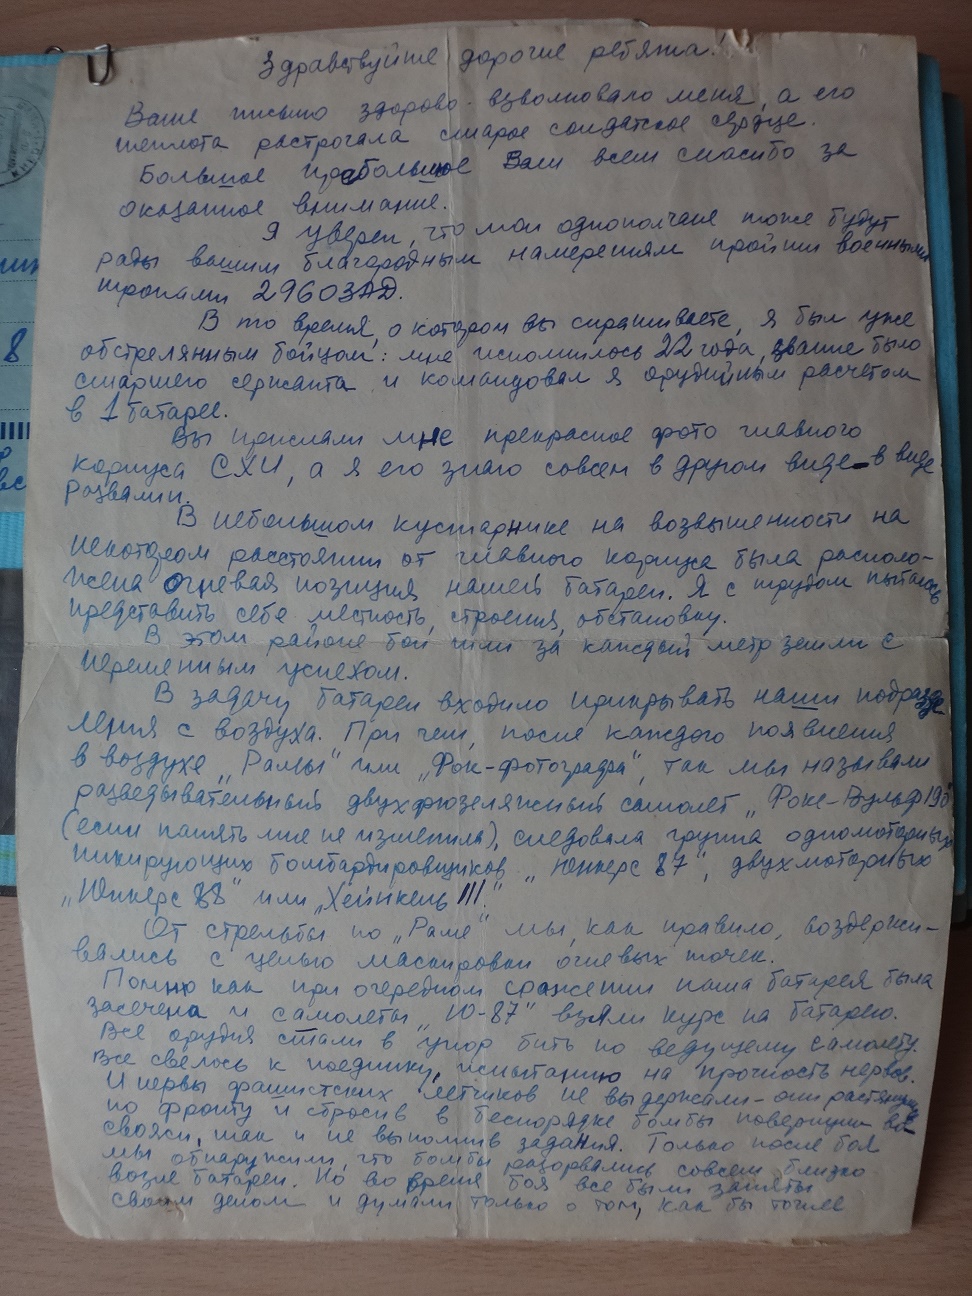 Здравствуйте дорогие ребята!
Ваше письмо здорово взволновало меня, а его
теплота растрогала старое солдатское сердце.
Большое пребольшое Вам всем спасибо за
оказанное внимание.
Я уверен, что мои однополчане тоже будут
рады вашим благородным намерениям пройти военными
тропами 296ОЗАД.
В то время, о котором вы спрашиваете, я был уже
обстрелянным бойцом: мне исполнилось 22 года, звание было
старшего сержанта и командовал я орудийным расчетом
в 1 батарее.
Вы прислали мне прекрасное фото главного
корпуса СХИ, а я его знаю совсем в другом виде - в виде
развалин.
В небольшом кустарнике на возвышенности на
некотором расстоянии от главного корпуса была располо-
жена огневая позиция нашей батареи. Я с трудом пытаюсь
представить себе местность, строения, обстановку.
В этом районе бои шли за каждый метр земли с
переменным успехом.
В задачу батареи входило прикрывать наши подразде
ления с воздуха. При чем, после каждого появления
в воздухе „Рамы" или „Фок-фотографа", так мы называли
разведывательный двухфюзеляжный самолет „Фоке-Вульф 190
(если память мне не изменила), следовала группа одномоторных
пикирующих бомбардировщиков „Юнкерс 87", двухмоторных
„Юнкерс 88" или „Хейнкель 111".
От стрельбы по „Раме" мы, как правило, воздержи-
вались с целью маскировки огневых точек.
Помню как при очередном сражении наша батарея была
засечена и самолеты „Ю-87" взяли курс на батарею.
Все орудия стали в упор бить по ведущему самолету.
Все свелось к поединку, испытанию на прочность нервов.
И нервы фашистских летчиков не выдержали - они растянулись
по фронту и сбросив в беспорядке бомбы повернули во-
свояси, так и не выполнив задания. Только после боя
мы обнаружили, что бомбы разорвались совсем близко
возле батареи. Но во время боя все были заняты
своим делом и думали только о том, как бы точнее
8